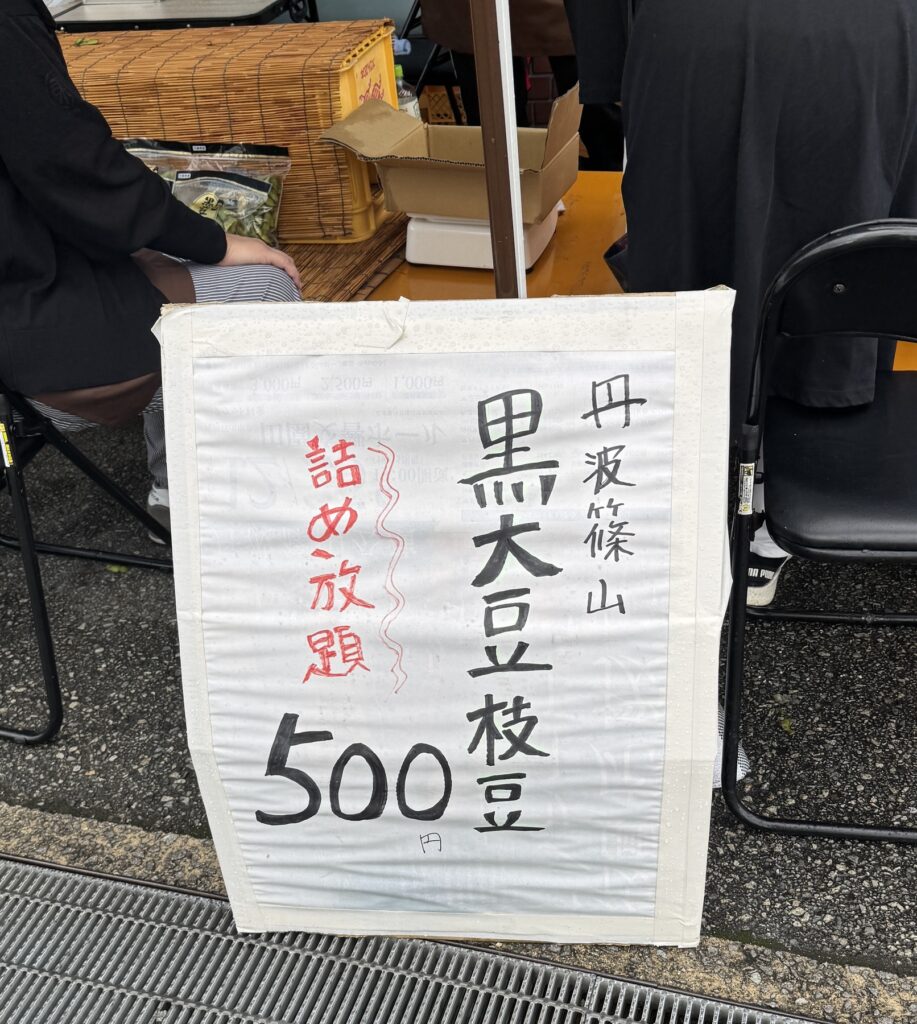 丹波篠山
黒大豆枝豆
詰め放題
500
円